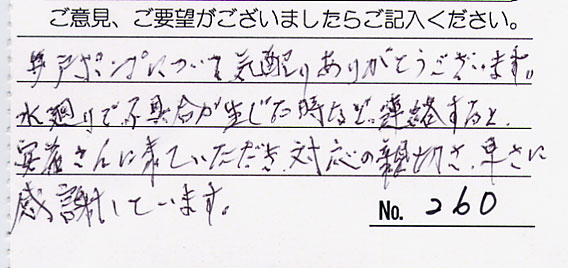 ご意見、ご要望がございましたらご記入ください。
井戸ポンプについて気配りありがとうございます。
水廻りで不具合が生じた時など、連絡すると、
さんに来ていただき、対応の親切さ、早さに
感謝しています。
No. 260